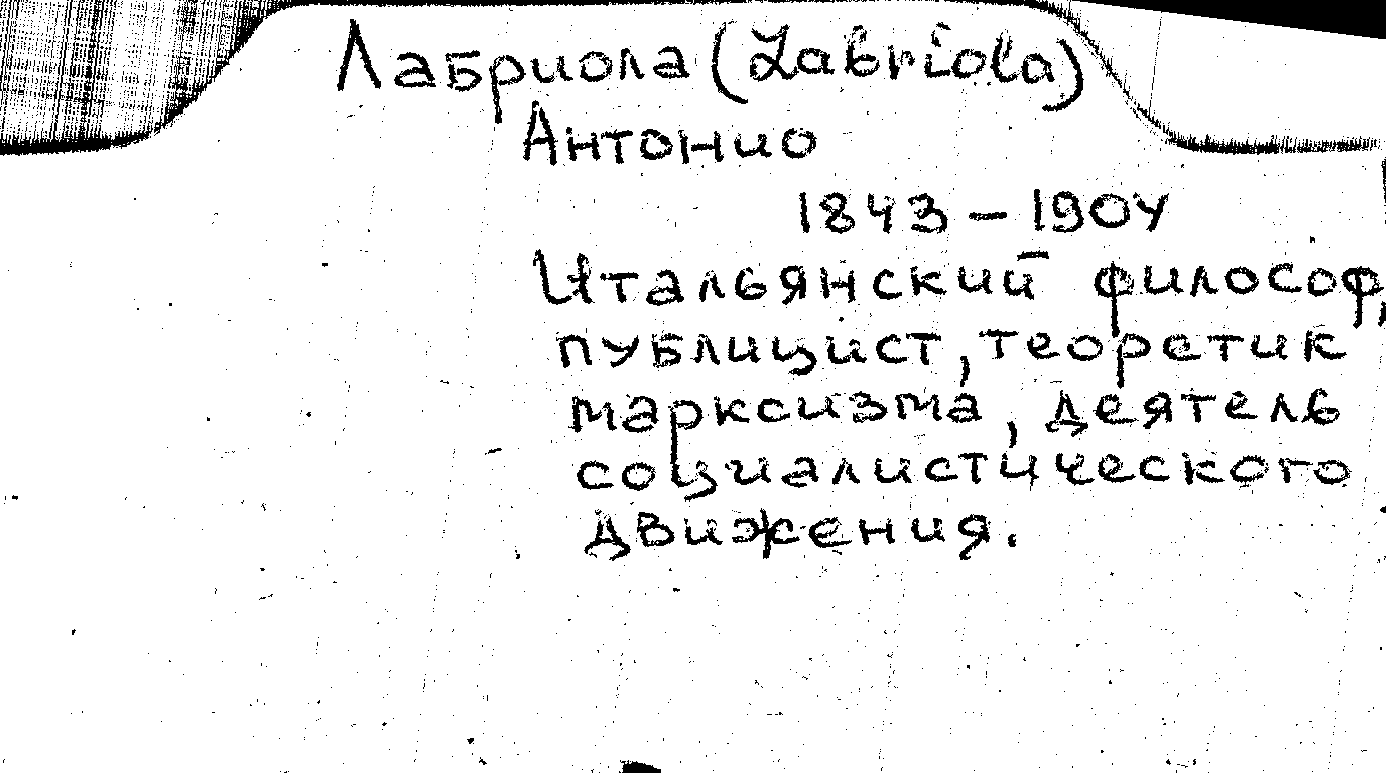 Лабриола (Labriola)
Антонио
1843 – 1904
Итальянский философ,
публицист, теоретик
марксизма, деятель
социалистического
движения.